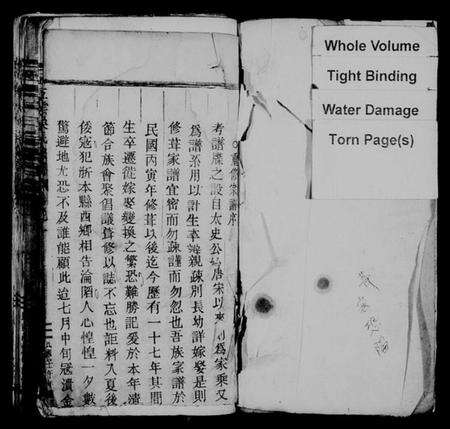 重修家譜序
考譜牒之設自太史公始唐宋以來則為家乘又
為譜系用以計生卒辨親疎別長幼詳嫁娶是則
修葺家譜宜密而勿疎謹而勿忽也吾族家譜於
民國丙寅年修葺以後迄今歷有一十七年其間
生卒遷從嫁娶變換之繁恐難勝記爰於本年清
節合族會聚倡議葺修以誌不忘也詎料入夏後
倭寇犯浙本縣西鄉相告淪陷人心惶惶一夕數
驚避地尤恐不及誰能顧此迨七月中旬寇潰金
Whole Volume
Tight Binding
Water Damage
Torn Page(s)